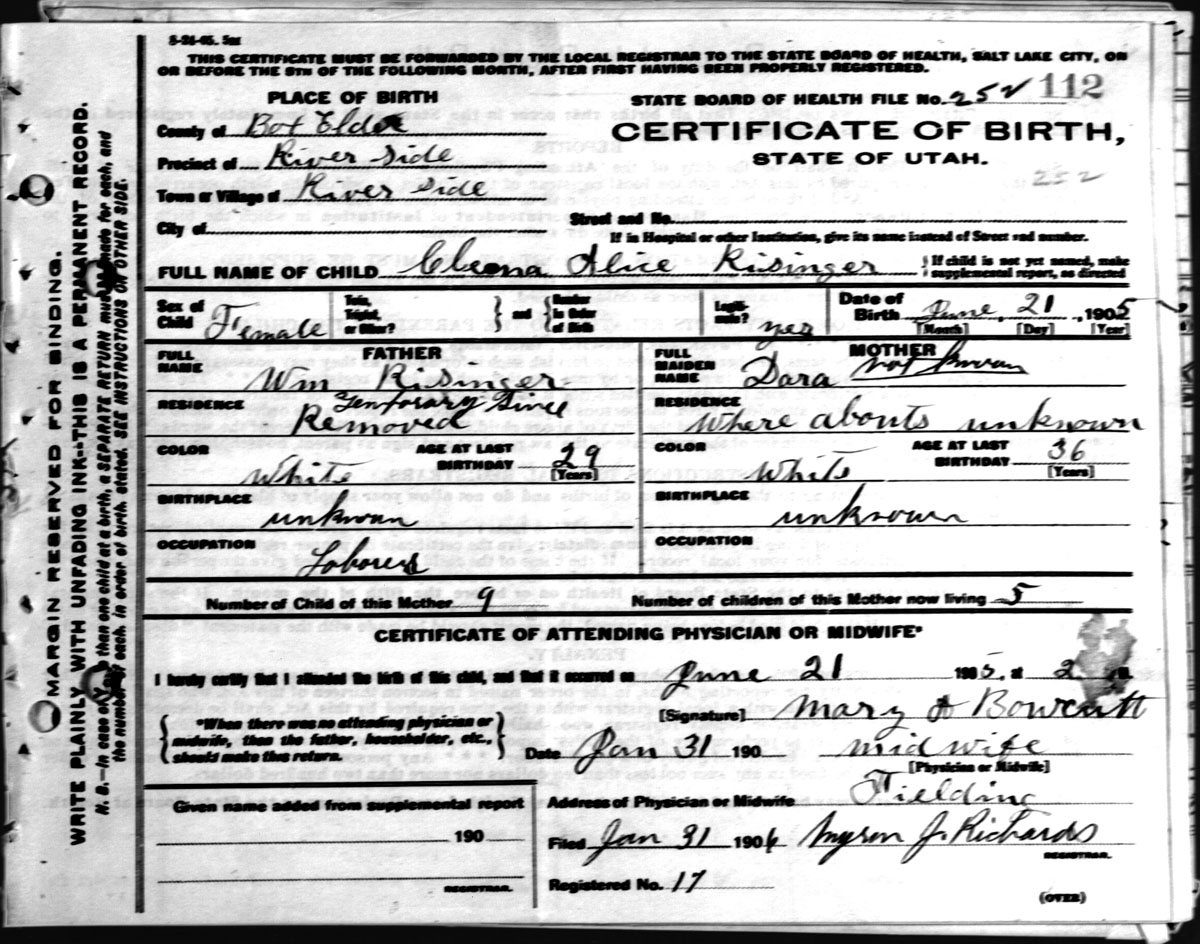 5-26-05. 5M
THIS CERTIFICATE MUST BE FORWARDED BY THE LOCAL REGISTRAR TO THE STATE BOARD OF HEALTH, SALT LAKE CITY, ON
OR BEFORE THE 5TH OF THE FOLLOWING MONTH, AFTER FIRST HAVING BEEN PROPERLY REGISTERED.
PLACE OF BIRTH
County of Box Elder
Precinct of River Side
Town or Village of River Side
City of
STATE BOARD OF HEALTH FILE No. 252 112
CERTIFICATE OF BIRTH,
STATE OF UTAH.
252
Street and No.
If in Hospital or other Institution, give its name instead of Street and number.
FULL NAME OF CHILD Cleona Alice Risinger
If child is not yet named, make
supplemental report, as directed
Sex of Child Female
Twin, Triplet, or Other?
and
Number in Order of Birth
Legitimate? yes
Date of Birth June 21, 1905
[Month] [Day] [Year]
FATHER
FULL NAME Wm Risinger
RESIDENCE Temporary Since
Removed
COLOR White
AGE AT LAST BIRTHDAY 29
[Years]
BIRTHPLACE unknown
OCCUPATION Laborer
MOTHER
FULL MAIDEN NAME Dora not known
RESIDENCE Where abouts unknown
COLOR White
AGE AT LAST BIRTHDAY 36
[Years]
BIRTHPLACE unknown
OCCUPATION
Number of Child of this Mother 9
Number of children of this Mother now living 5
CERTIFICATE OF ATTENDING PHYSICIAN OR MIDWIFE*
I hereby certify that I attended the birth of this child, and that it occurred on June 21 1905, at 2
*When there was no attending physician or
midwife, then the father, householder, etc.,
should make this return.
[Signature] Mary A Bowcutt
Date Jan 31 190 midwife
[Physician or Midwife]
Given name added from supplemental report
190
REGISTRAR.
Address of Physician or Midwife Fielding
Filed Jan 31 1906 Myron J. Richards
REGISTRAR.
Registered No. 17
(OVER)
MARGIN RESERVED FOR BINDING.
WRITE PLAINLY WITH UNFADING INK--THIS IS A PERMANENT RECORD.
N. B.—In case of more than one child at a birth, a SEPARATE RETURN must be made for each, and
the number of each, in order of birth, stated. SEE INSTRUCTIONS ON OTHER SIDE.